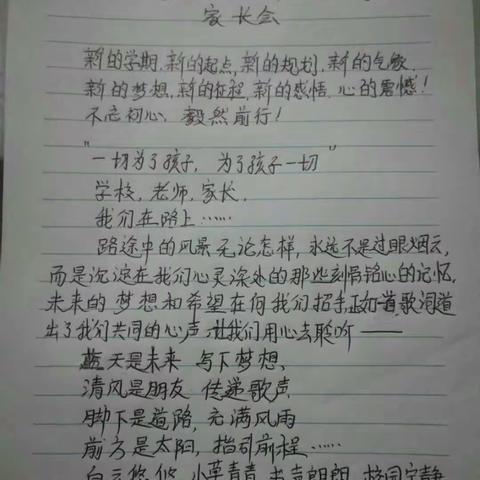 家长会
新的学期,新的起点,新的规划,新的气象,
新的梦想,新的征程,新的感悟,心的震憾!
不忘初心、毅然前行!
"一切为了孩子,为了孩子一切"
学校,老师,家长,
我们在路上……
路途中的风景无论怎样,永远不是过眼烟云,
而是沉淀在我们心灵深处的那些刻骨铭心的记忆,
未来的梦想和希望在向我们招手,正如一首歌词道
出了我们共同的心声,让我们用心去聆听——
蓝天是未来 写下梦想、
清风是朋友 传递歌声,
脚下是道路,充满风雨
前方是太阳,指引前程……
白云悠悠,小草青青,书声朗朗,校园宁静